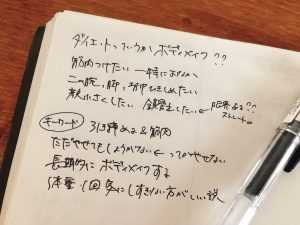 ダイエットっていうか ボディメイク??
筋肉つけたい 一特におなか
二の腕,脚,背中ひきしめたい
軟小さくしたい 鏡生したい← 限界ある??
ストレート
キーワード 引き締め&筋肉
ただやせてもしょうがない← ってかやせない
長期的に ボディメイクする
体重 1回 気にしすぎない方がいい説